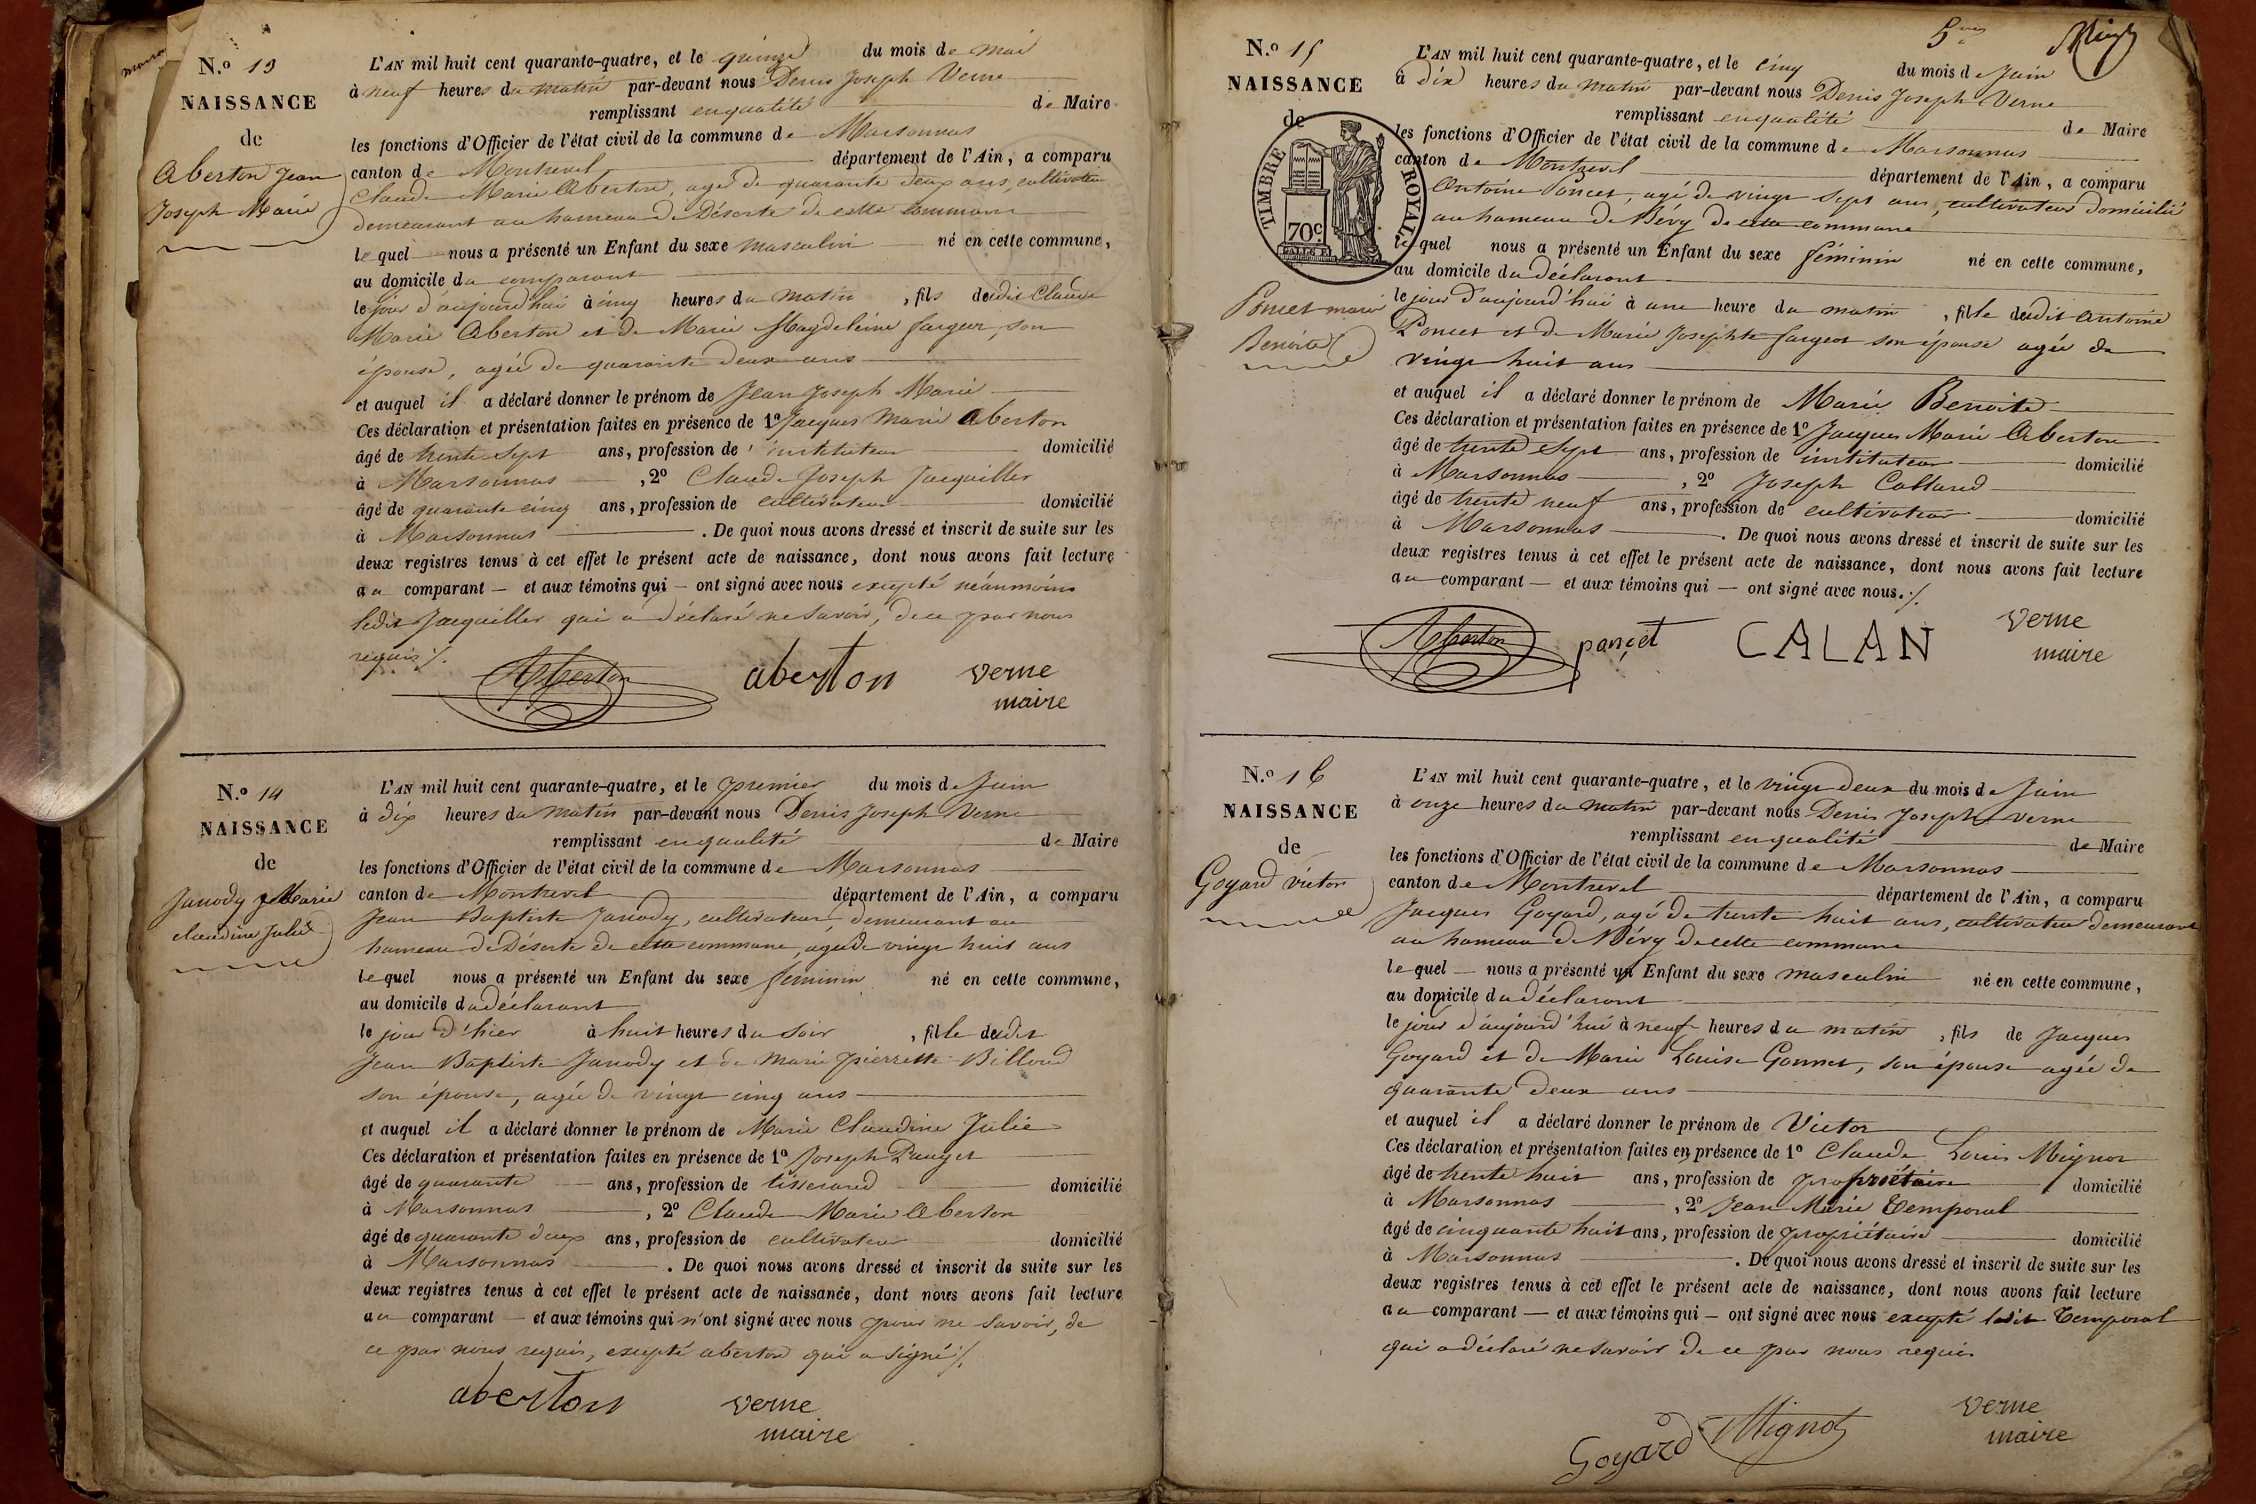 N.º 13
NAISSANCE
de
Aberton Jean
Joseph Marie
L'AN mil huit cent quarante-quatre, et le quinze du mois de Mai
à neuf heures du matin par-devant nous Denis Joseph Verne
remplissant en qualité de Maire
les fonctions d'Officier de l'état civil de la commune de Marsonnas
canton de Montrevel département de l'Ain, a comparu
Claude Marie Aberton, agé de quarante deux ans, cultivateur
demeurant au hameau de Déserte de cette commune
le quel nous a présenté un Enfant du sexe masculin né en cette commune,
au domicile du comparant
le jour d'aujourd'hui à cinq heures du matin, fils dudit Claude
Marie Aberton et de Marie Magdeleine fargeur, son
épouse, agée de quarante deux ans
et auquel il a déclaré donner le prénom de Jean Joseph Marie
Ces déclaration et présentation faites en présence de 1º Jacques Marie Aberton
âgé de trente sept ans, profession de instituteur domicilié
à Marsonnas, 2º Claude Joseph Jacquiller
âgé de quarante cinq ans, profession de cultivateur domicilié
à Marsonnas. De quoi nous avons dressé et inscrit de suite sur les
deux registres tenus à cet effet le présent acte de naissance, dont nous avons fait lecture
au comparant — et aux témoins qui — ont signé avec nous excepté néanmoins
ledit Jacquiller qui a déclaré ne savoir, de ce par nous
requis /.
Aberton aberton verne
maire
N.º 14
NAISSANCE
de
Janody Marie
claudine Julie
L'AN mil huit cent quarante-quatre, et le premier du mois de Juin
à dix heures du matin par-devant nous Denis Joseph Verne
remplissant en qualité de Maire
les fonctions d'Officier de l'état civil de la commune de Marsonnas
canton de Montrevel département de l'Ain, a comparu
Jean Baptiste Janody, cultivateur, demeurant au
hameau de Déserte de cette commune, agé de vingt huit ans
le quel nous a présenté un Enfant du sexe feminin né en cette commune,
au domicile du déclarant
le jour d'hier à huit heures du soir, fille dudit
Jean Baptiste Janody et de Marie pierrette Billoud
son épouse, agée de vingt cinq ans
et auquel il a déclaré donner le prénom de Marie Claudine Julie
Ces déclaration et présentation faites en présence de 1º Joseph Pauget
âgé de quarante ans, profession de tisserand domicilié
à Marsonnas, 2º Claude Marie Aberton
âgé de quarante deux ans, profession de cultivateur domicilié
à Marsonnas. De quoi nous avons dressé et inscrit de suite sur les
deux registres tenus à cet effet le présent acte de naissance, dont nous avons fait lecture
au comparant — et aux témoins qui n'ont signé avec nous pour ne savoir, de
ce par nous requis, excepté aberton qui a signé /.
aberton verne
maire
5
N.º 15
NAISSANCE
de
TIMBRE ROYAL
70c
Poncet marie
Benoite
L'AN mil huit cent quarante-quatre, et le cinq du mois de Juin
à dix heures du matin par-devant nous Denis Joseph Verne
remplissant en qualité de Maire
les fonctions d'Officier de l'état civil de la commune de Marsonnas
canton de Montrevel département de l'Ain, a comparu
Antoine Poncet, agé de vingt sept ans, cultivateur domicilié
au hameau de Bévy de cette commune
le quel nous a présenté un Enfant du sexe féminin né en cette commune,
au domicile du déclarant
le jour d'aujourd'hui à une heure du matin, fille dudit Antoine
Poncet et de Marie Josephte fargeot son épouse agée de
vingt huit ans
et auquel il a déclaré donner le prénom de Marie Benoite
Ces déclaration et présentation faites en présence de 1º Jacques Marie Aberton
âgé de trente sept ans, profession de instituteur domicilié
à Marsonnas, 2º Joseph
âgé de trente neuf ans, profession de cultivateur domicilié
à Marsonnas. De quoi nous avons dressé et inscrit de suite sur les
deux registres tenus à cet effet le présent acte de naissance, dont nous avons fait lecture
au comparant — et aux témoins qui — ont signé avec nous. /.
Aberton ponçet CALAN verne
maire
N.º 16
NAISSANCE
de
Goyard victor
L'AN mil huit cent quarante-quatre, et le vingt deux du mois de Juin
à onze heures du matin par-devant nous Denis Joseph verne
remplissant en qualité de Maire
les fonctions d'Officier de l'état civil de la commune de Marsonnas
canton de Montrevel département de l'Ain, a comparu
Jacques Goyard, agé de trente huit ans, cultivateur demeurant
au hameau de Bévy de cette commune
le quel — nous a présenté un Enfant du sexe masculin né en cette commune,
au domicile du déclarant
le jour d'aujourd'hui à neuf heures du matin, fils de Jacques
Goyard et de Marie Louise Gonnet, son épouse agée de
quarante deux ans
et auquel il a déclaré donner le prénom de Victor
Ces déclaration et présentation faites en présence de 1º Claude Louis Mignot
âgé de trente huit ans, profession de propriétaire domicilié
à Marsonnas, 2º Jean Marie Temporal
âgé de cinquante huit ans, profession de propriétaire domicilié
à Marsonnas. De quoi nous avons dressé et inscrit de suite sur les
deux registres tenus à cet effet le présent acte de naissance, dont nous avons fait lecture
au comparant — et aux témoins qui — ont signé avec nous excepté ledit Temporal
qui a déclaré ne savoir de ce par nous requis
Goyard Mignot verne
maire